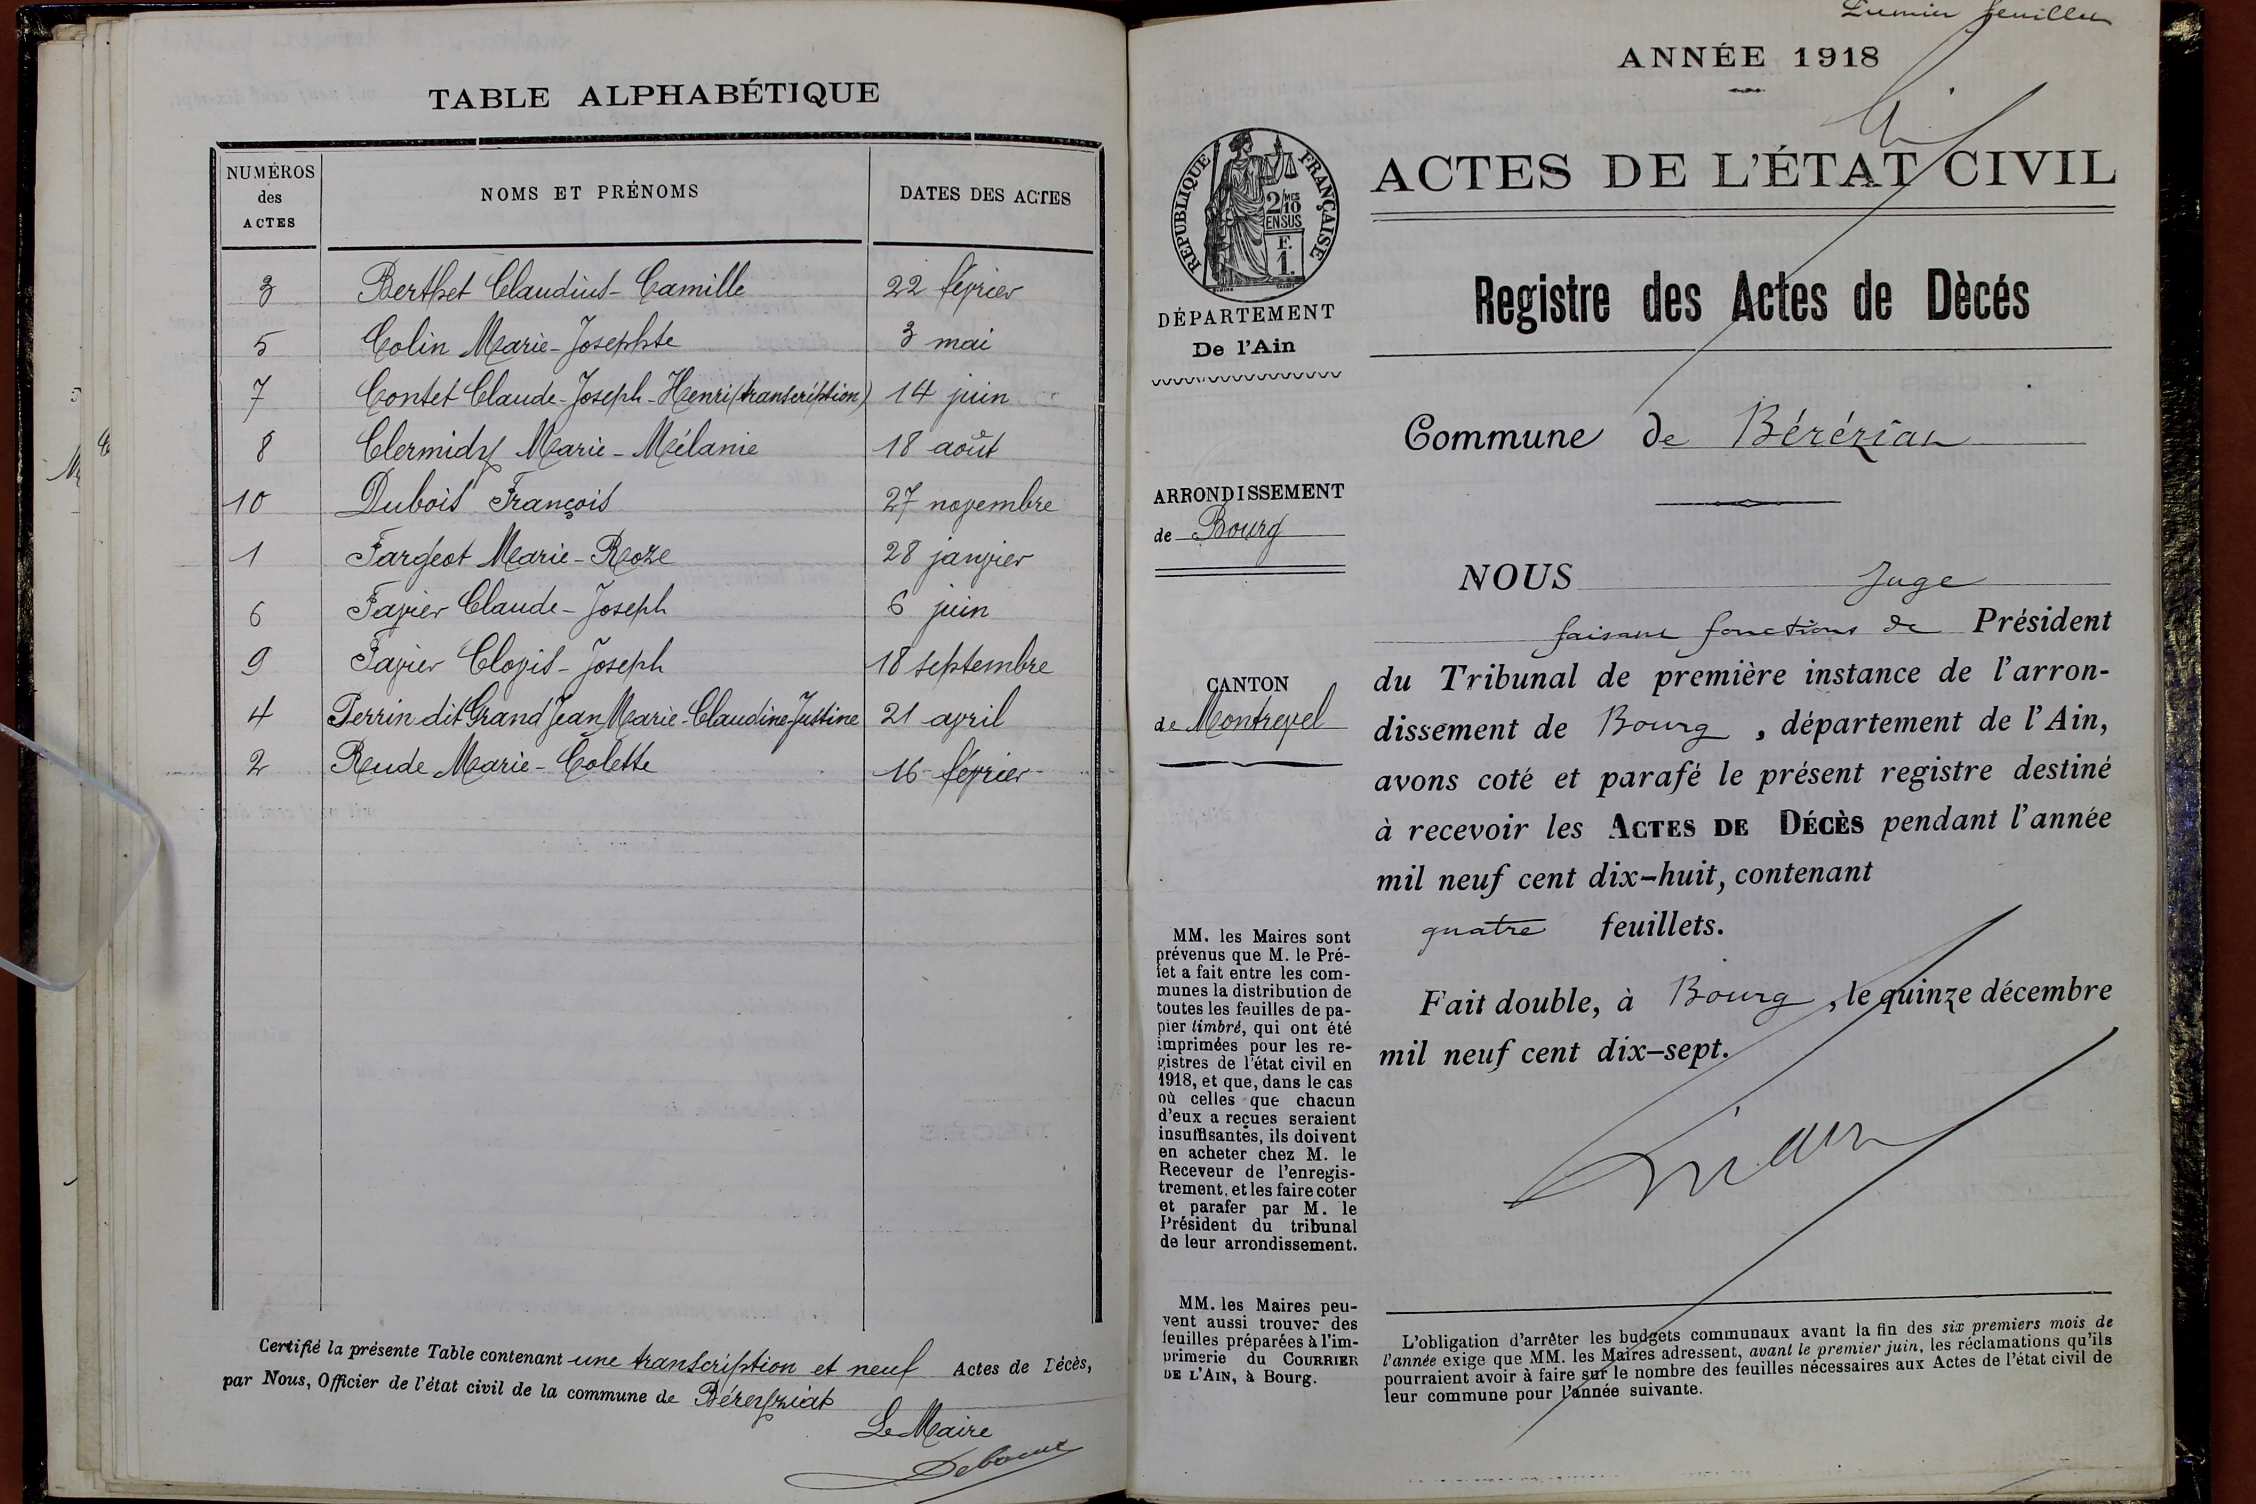 TABLE ALPHABÉTIQUE
NUMÉROS des ACTES | NOMS ET PRÉNOMS | DATES DES ACTES
3 Berthet Claudius-Camille 22 février
5 Colin Marie-Josephte 3 mai
7 Contet Claude-Joseph-Henri (transcription) 14 juin
8 Clermidy Marie-Mélanie 18 août
10 Dubois François 27 novembre
1 Fargeot Marie-Roze 28 janvier
6 Favier Claude-Joseph 6 juin
9 Favier Clovis-Joseph 18 septembre
4 Perrin dit Grand Jean Marie-Claudine-Justine 21 avril
2 Rude Marie-Colette 16 février
Certifié la présente Table contenant une transcription et neuf Actes de Décès,
par Nous, Officier de l'état civil de la commune de Béreyziat
Le Maire
Premier feuillet
ANNÉE 1918
RÉPUBLIQUE FRANÇAISE
2/MES 10
EN SUS
F.
1.
DÉPARTEMENT
De l'Ain
ARRONDISSEMENT
de Bourg
CANTON
de Montrevel
MM. les Maires sont
prévenus que M. le Pré-
fet a fait entre les com-
munes la distribution de
toutes les feuilles de pa-
pier timbré, qui ont été
imprimées pour les re-
gistres de l'état civil en
1918, et que, dans le cas
où celles que chacun
d'eux a reçues seraient
insuffisantes, ils doivent
en acheter chez M. le
Receveur de l'enregis-
trement, et les faire coter
et parafer par M. le
Président du tribunal
de leur arrondissement.
MM. les Maires peu-
vent aussi trouver des
feuilles préparées à l'im-
primerie du COURRIER
DE L'AIN, à Bourg.
ACTES DE L'ÉTAT CIVIL
Registre des Actes de Dècés
Commune de Béréziat
NOUS Juge
faisant fonctions de Président
du Tribunal de première instance de l'arron-
dissement de Bourg, département de l'Ain,
avons coté et parafé le présent registre destiné
à recevoir les ACTES DE DÉCÈS pendant l'année
mil neuf cent dix-huit, contenant
quatre feuillets.
Fait double, à Bourg, le quinze décembre
mil neuf cent dix-sept.
L'obligation d'arrêter les budgets communaux avant la fin des six premiers mois de
l'année exige que MM. les Maires adressent, avant le premier juin, les réclamations qu'ils
pourraient avoir à faire sur le nombre des feuilles nécessaires aux Actes de l'état civil de
leur commune pour l'année suivante.